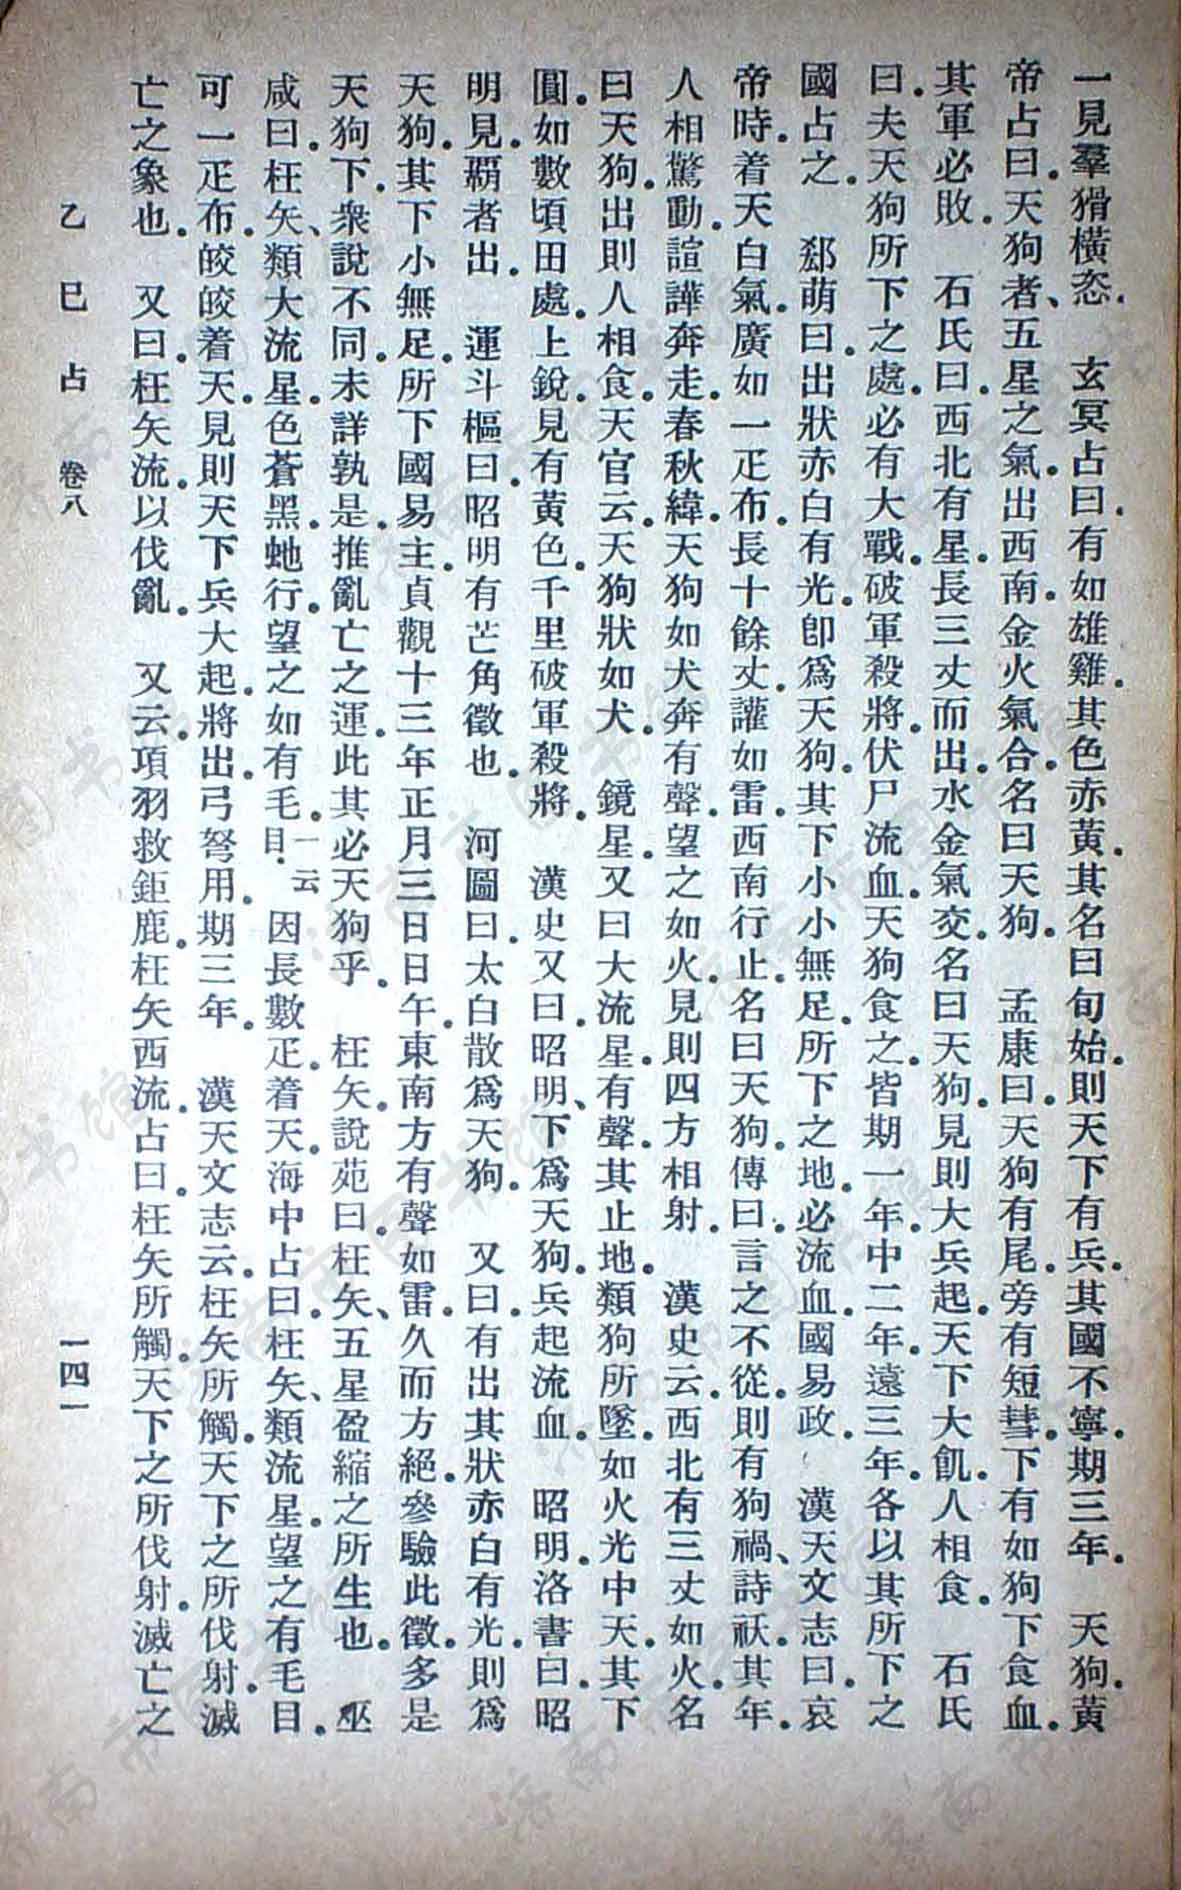 一見羣猾橫恣．　玄冥占曰．有如雄雞．其色赤黃．其名曰旬始．則天下有兵．其國不寧．期三年．　天狗．黃
帝占曰．天狗者、五星之氣．出西南．金火氣合．名曰天狗．　孟康曰．天狗有尾．旁有短彗．下有如狗下食血．
其軍必敗．　石氏曰．西北有星．長三丈而出．水金氣交．名曰天狗．見則大兵起．天下大飢．人相食．　石氏
曰．夫天狗所下之處．必有大戰．破軍殺將．伏尸流血．天狗食之．皆期一年．中二年．遠三年．各以其所下之
國占之．　郄萌曰．出狀赤白有光．卽爲天狗．其下小小無足．所下之地．必流血．國易政．　漢天文志曰．哀
帝時．着天白氣．廣如一疋布．長十餘丈．讙如雷．西南行止．名曰天狗．傳曰．言之不從．則有狗禍、詩祅．其年．
人相驚動．諠譁奔走．春秋緯．天狗如犬奔有聲．望之如火．見則四方相射．　漢史云．西北有三丈如火．名
曰天狗．出則人相食．天官云．天狗狀如犬．　鏡星．又曰大流星．有聲．其止地．類狗．所墜．如火光中天．其下
圓．如數頃田處．上銳．見有黃色．千里破軍殺將．　漢史又曰．昭明、下爲天狗．兵起流血．　昭明．洛書曰．昭
明見．覇者出．　運斗樞曰．昭明有芒角徵也．　河圖曰．太白散爲天狗．　又曰．有出其狀赤白有光．則爲
天狗．其下小無足．所下國易主．貞觀十三年正月三日日午．東南方有聲如雷．久而方絕．參驗此徵．多是
天狗下．衆說不同．未詳孰是．推亂亡之運．此其必天狗乎．　枉矢．說苑曰．枉矢、五星盈縮之所生也．　巫
咸曰．枉矢、類大流星．色蒼黑．虵行．望之如有毛．一云目．因長數疋．着天．海中占曰．枉矢、類流星．望之有毛目．
可一疋布．皎皎着天．見則天下兵大起．將出．弓弩用．期三年．　漢天文志云．枉矢所觸．天下之所伐射．滅
亡之象也．　又曰．枉矢流．以伐亂．　又云．項羽救鉅鹿．枉矢西流．占曰．枉矢所觸．天下之所伐射．滅亡之
乙巳占　卷八　一四一